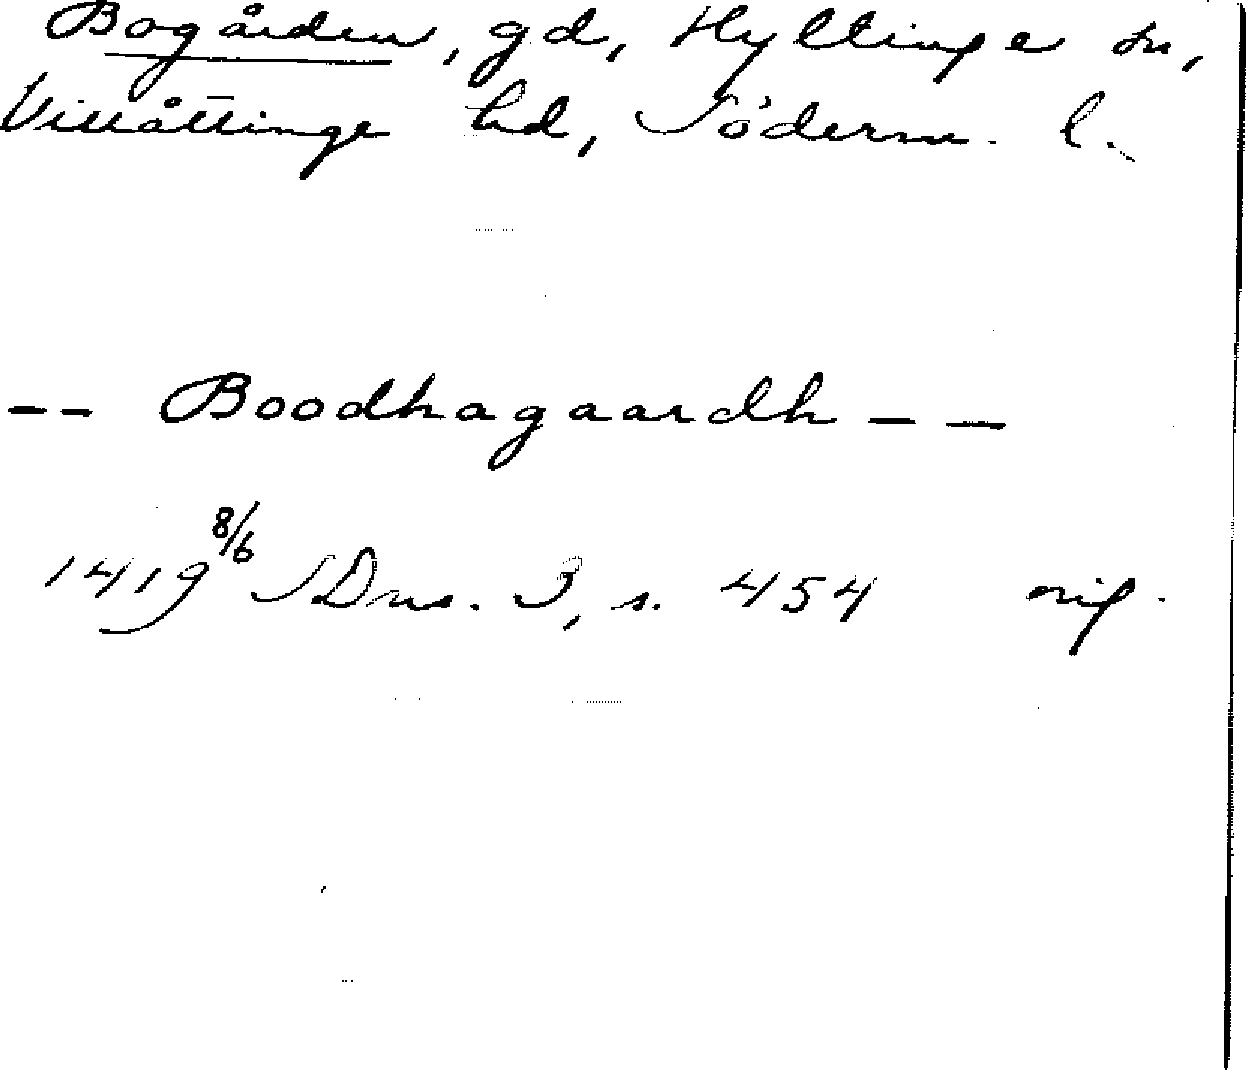 Bogården, gd, Hyltinge sn,
Villåttinge hd, Söderm. l.
-- Boodhagaardh --
1419 8/6 SDns. 3, s. 454 orig.